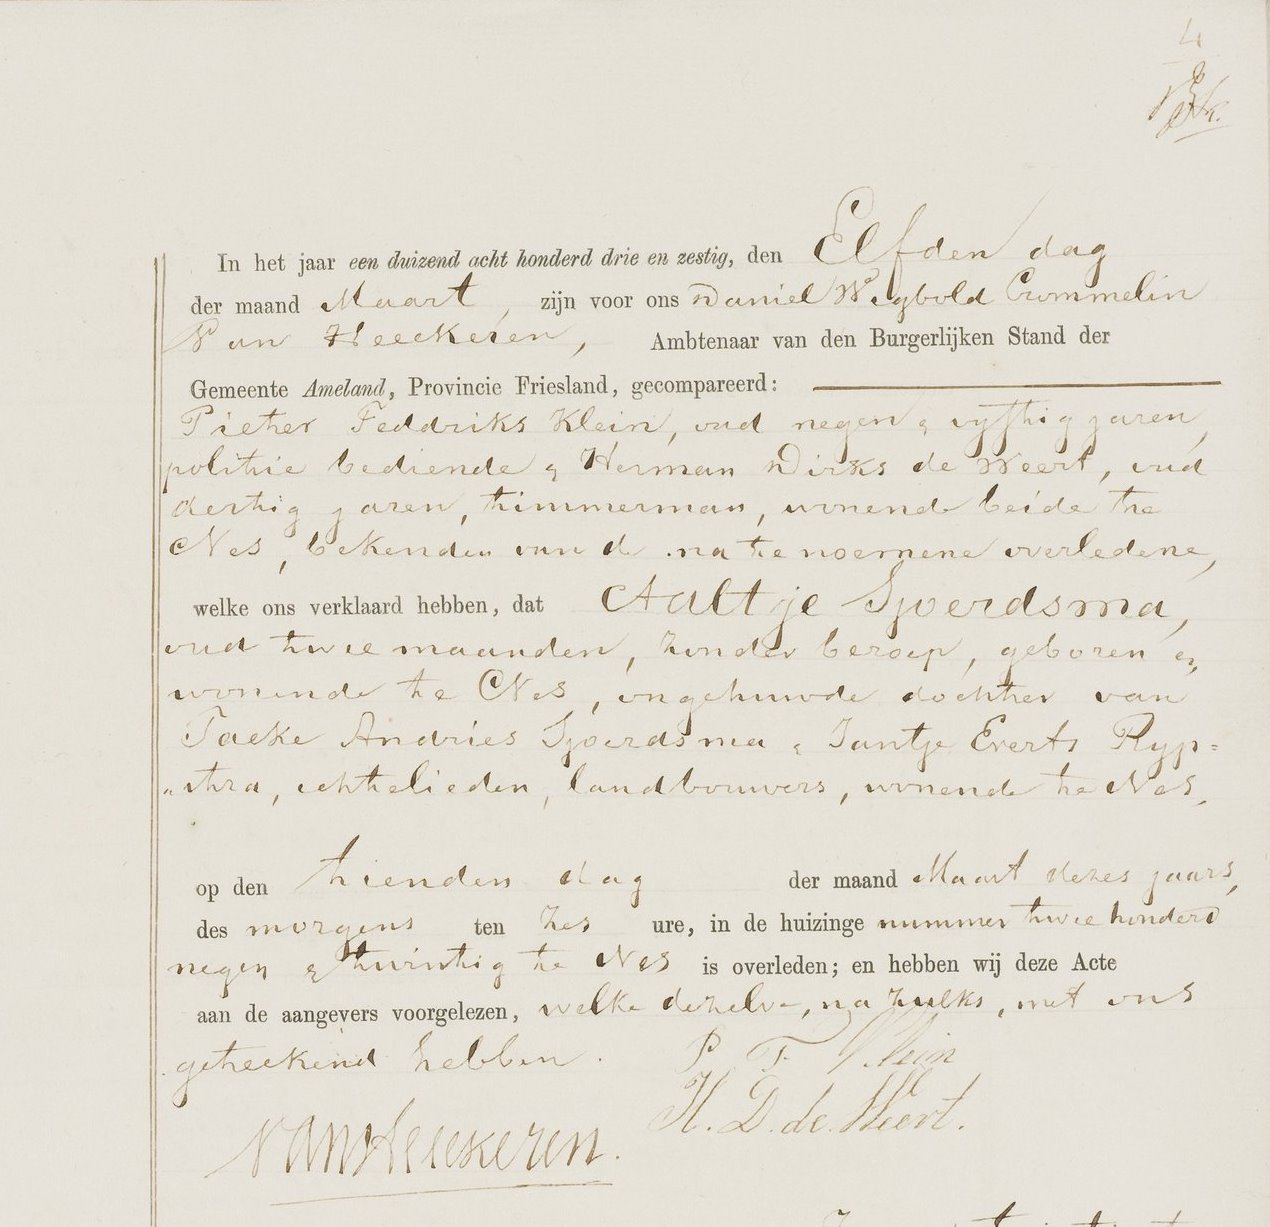 4
In het jaar een duizend acht honderd drie en zestig, den Elfden dag
der maand Maart, zijn voor ons Daniel Wigbold Crommelin
Van Heeckeren, Ambtenaar van den Burgerlijken Stand der
Gemeente Ameland, Provincie Friesland, gecompareerd:
Pieter Feddriks Klein, oud negen & vyftig jaren,
politie bediende & Herman Dirks de Weert, oud
dertig jaren, timmerman, wonende beide te
Nes, bekenden van de na te noemene overledene,
welke ons verklaard hebben, dat Aaltje Sjoerdsma,
oud twee maanden, zonder beroep, geboren en
wonende te Nes, ongehuwde dochter van
Taeke Andries Sjoerdsma & Jantje Everts Ryp=
"stra, echtelieden, landbouwers, wonende te Nes,
op den tienden dag der maand Maart dezes jaars,
des morgens ten zes ure, in de huizinge nummer twee honderd
negen & twintig te Nes is overleden; en hebben wij deze Acte
aan de aangevers voorgelezen, welke dezelve, na zulks, met ons
geteekend hebben.
P. F. Klein
H. D. de Weert.
Van Heeckeren.